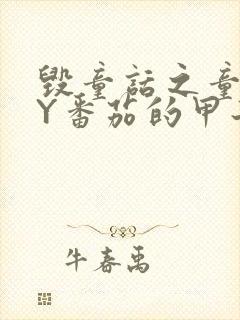 毁童话之童
Y番茄的甲
牛春禹